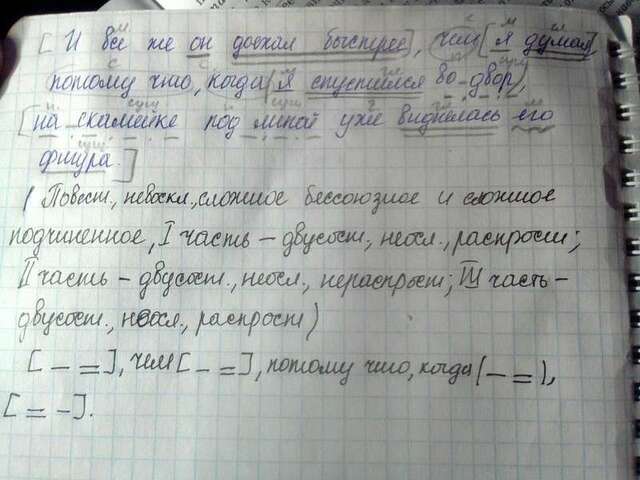 [И все же он доехал быстрее], чем [я думал],
потому что, когда (я спустился во двор),
[на скамейке под липой уже виднелась его
фигура.]
(Повест., невоскл., сложное бессоюзное и сложное
подчиненное, I часть – двусост., неосл., распрост.;
II часть – двусост., неосл., нераспрост.; III часть –
двусост., неосл., распрост)
[– =], чем [– =], потому что, когда (– =),
[= –].